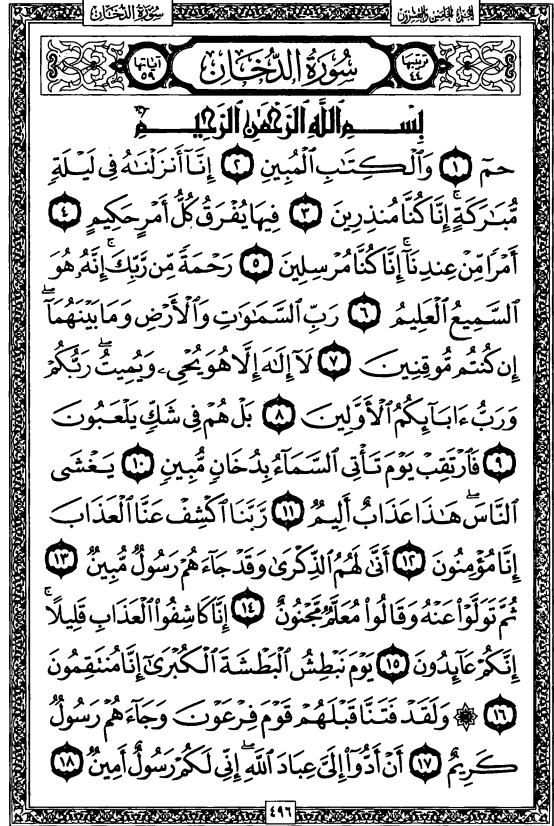 الجزء الخامس والعشرون سورة الدخان
ترتيبها ٤٤ سُورَةُ الدُّخَانِ آياتها ٥٩
بِسْمِ اللَّهِ الرَّحْمَٰنِ الرَّحِيمِ
حمٓ ١ وَٱلْكِتَٰبِ ٱلْمُبِينِ ٢ إِنَّآ أَنزَلْنَٰهُ فِى لَيْلَةٍ
مُّبَٰرَكَةٍ ۚ إِنَّا كُنَّا مُنذِرِينَ ٣ فِيهَا يُفْرَقُ كُلُّ أَمْرٍ حَكِيمٍ ٤
أَمْرًا مِّنْ عِندِنَآ ۚ إِنَّا كُنَّا مُرْسِلِينَ ٥ رَحْمَةً مِّن رَّبِّكَ ۚ إِنَّهُۥ هُوَ
ٱلسَّمِيعُ ٱلْعَلِيمُ ٦ رَبِّ ٱلسَّمَٰوَٰتِ وَٱلْأَرْضِ وَمَا بَيْنَهُمَآ ۖ
إِن كُنتُم مُّوقِنِينَ ٧ لَآ إِلَٰهَ إِلَّا هُوَ يُحْىِۦ وَيُمِيتُ ۖ رَبُّكُمْ
وَرَبُّ ءَابَآئِكُمُ ٱلْأَوَّلِينَ ٨ بَلْ هُمْ فِى شَكٍّ يَلْعَبُونَ
٩ فَٱرْتَقِبْ يَوْمَ تَأْتِى ٱلسَّمَآءُ بِدُخَانٍ مُّبِينٍ ١٠ يَغْشَى
ٱلنَّاسَ ۖ هَٰذَا عَذَابٌ أَلِيمٌ ١١ رَّبَّنَا ٱكْشِفْ عَنَّا ٱلْعَذَابَ
إِنَّا مُؤْمِنُونَ ١٢ أَنَّىٰ لَهُمُ ٱلذِّكْرَىٰ وَقَدْ جَآءَهُمْ رَسُولٌ مُّبِينٌ ١٣
ثُمَّ تَوَلَّوْا۟ عَنْهُ وَقَالُوا۟ مُعَلَّمٌ مَّجْنُونٌ ١٤ إِنَّا كَاشِفُوا۟ ٱلْعَذَابِ قَلِيلًا ۚ
إِنَّكُمْ عَآئِدُونَ ١٥ يَوْمَ نَبْطِشُ ٱلْبَطْشَةَ ٱلْكُبْرَىٰٓ إِنَّا مُنتَقِمُونَ
١٦ ۞ وَلَقَدْ فَتَنَّا قَبْلَهُمْ قَوْمَ فِرْعَوْنَ وَجَآءَهُمْ رَسُولٌ
كَرِيمٌ ١٧ أَنْ أَدُّوٓا۟ إِلَىَّ عِبَادَ ٱللَّهِ ۖ إِنِّى لَكُمْ رَسُولٌ أَمِينٌ ١٨
٤٩٦